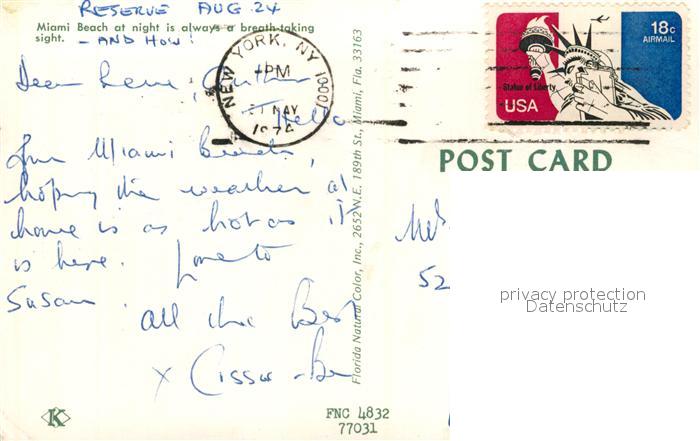 RESERVE AUG 24
Miami Beach at night is always a breath-taking
sight. - AND HOW!
Dear Rene,
Hello
from Miami Beach,
hoping the weather at
home is as hot as it
is here. Love to
Susan
All the Best
x Cissie - Ben
FNC 4832
77031
K
Florida Natural Color, Inc., 2652 N.E. 189th St., Miami, Fla. 33163
NEW YORK, NY 10001
PM
MAY
1974
Statue of Liberty
USA
18c
AIRMAIL
POST CARD
52
privacy protection
Datenschutz